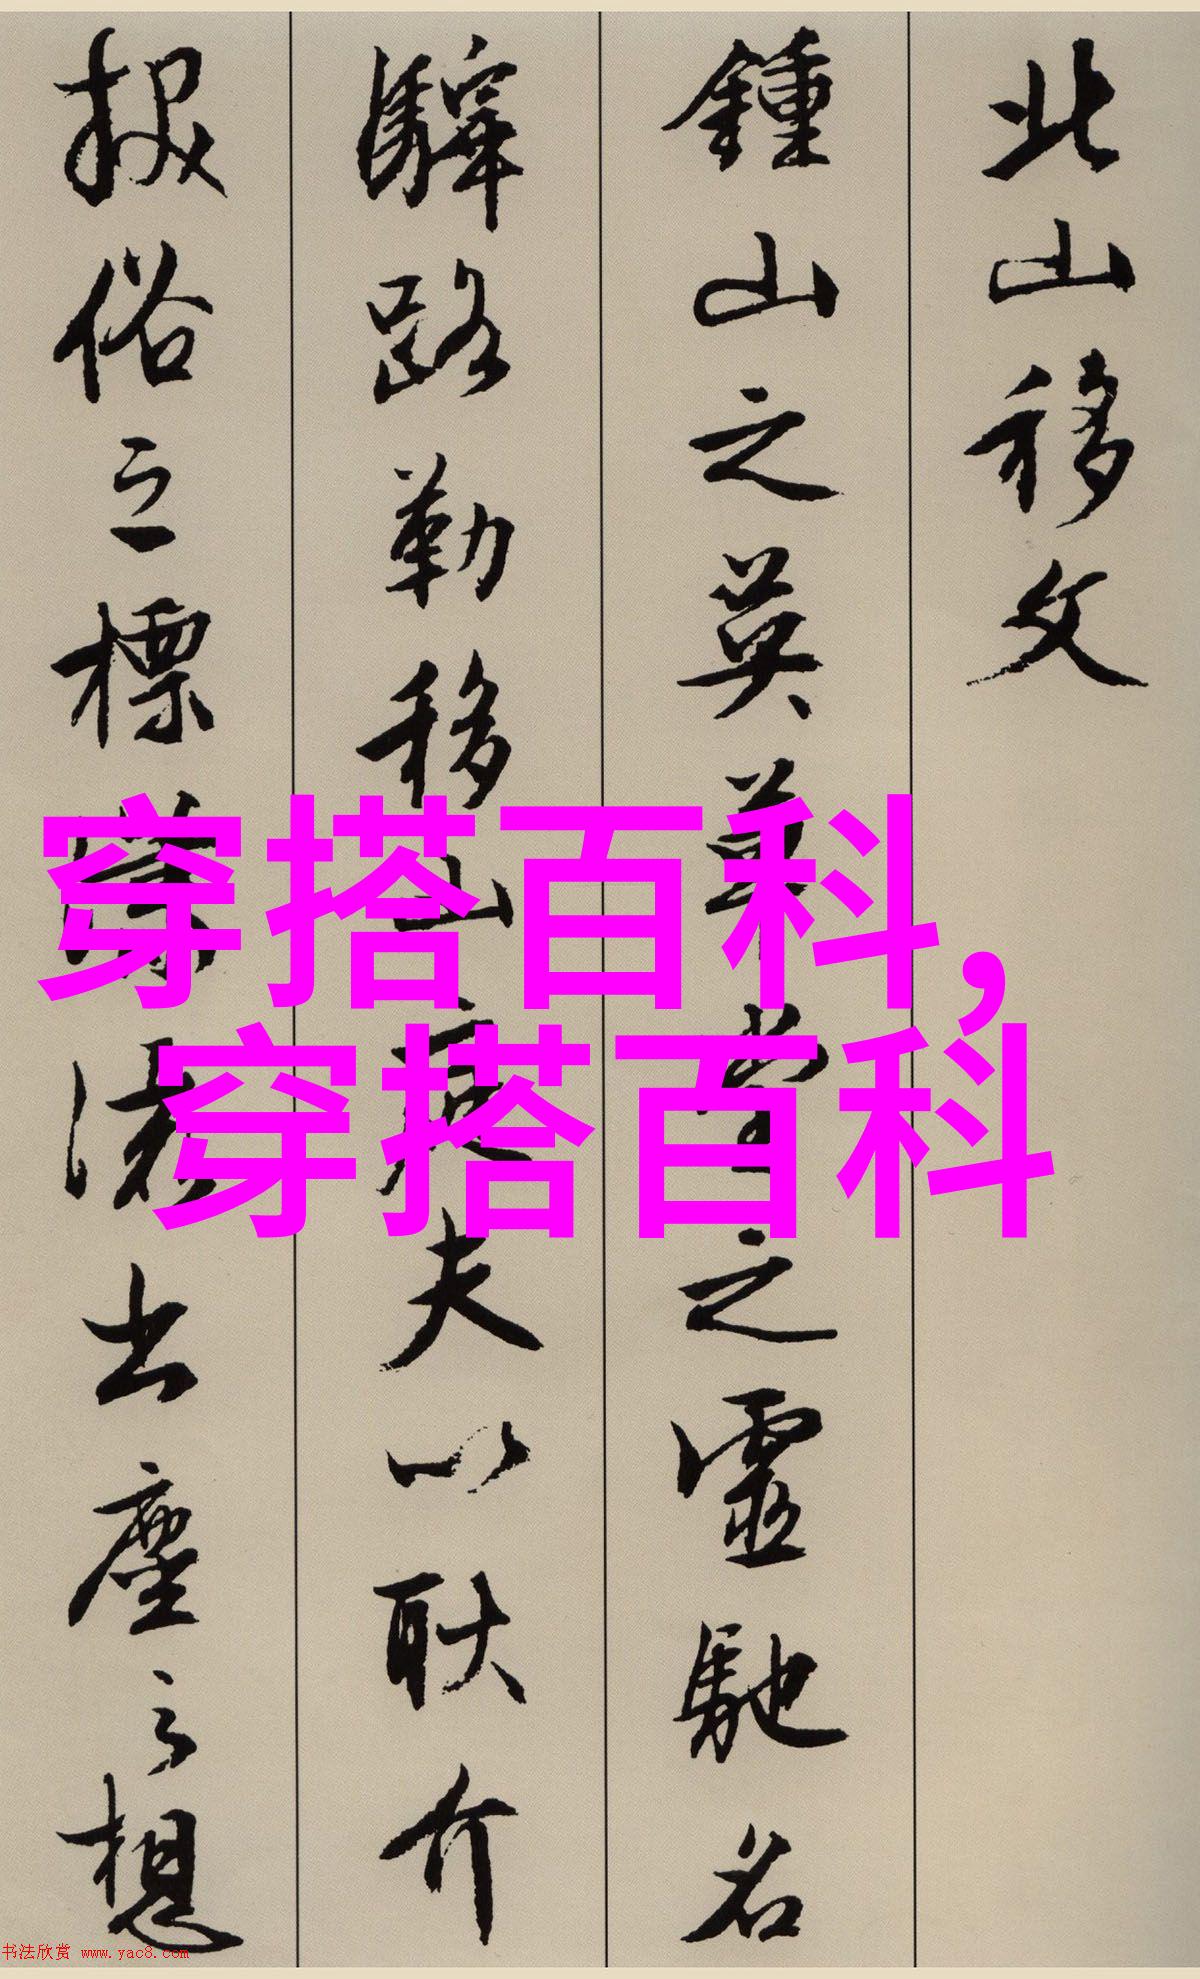 北山移文
鍾山之英草堂之靈馳名
驛路勒移山庭夫以耿介
拔俗之標瀟灑出塵之想
穿搭百科,
穿搭百科
书法欣赏 www.yac8.com